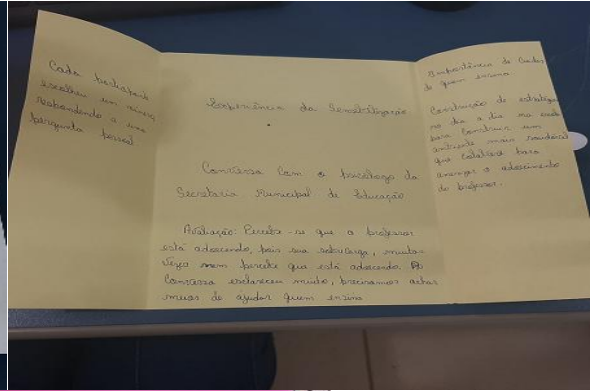 Cada participante
escolheu um número
respondendo a uma
pergunta pessoal.
Experiência da Sensibilização
Conversa com o psicólogo da
Secretaria Municipal de Educação
Avaliação: Percebe-se que o professor
está adoecendo, pois sua sobrecarga, muitas
vezes nem percebe que está adoecendo. A
conversa esclareceu muito, precisamos achar
meios de ajudar quem ensina
Importância de Cuidar
de quem ensina
Construção de estratégias
no dia a dia na escola
para construir um
ambiente mais saudável
que colabore para
amenizar o adoecimento
do professor.